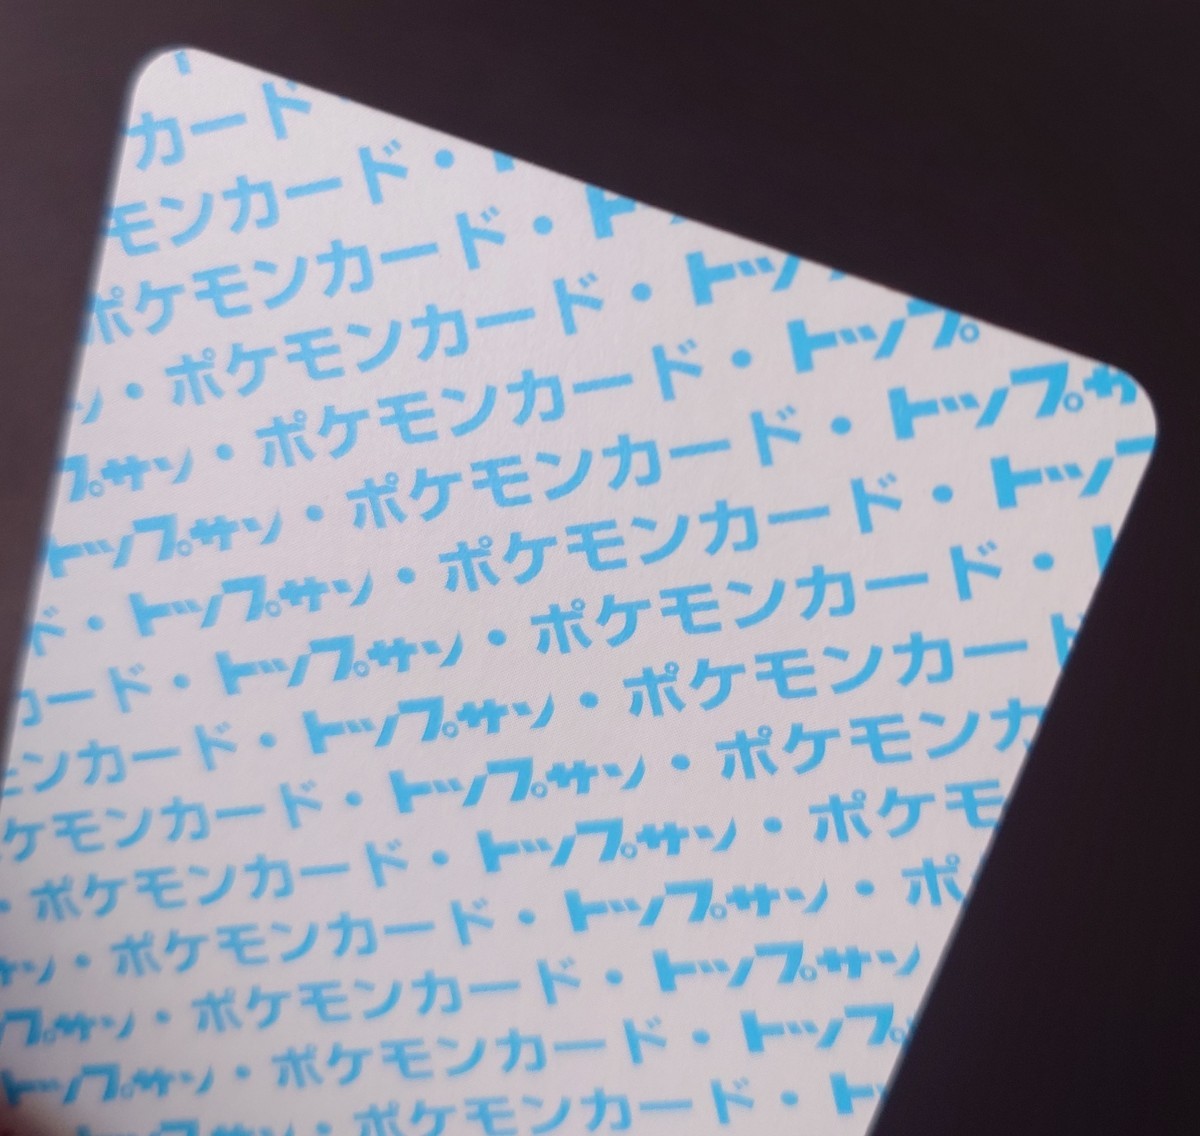 カード
モンカード・
ポケモンカード・ト
ン・ポケモンカード・トッ
プサン・ポケモンカード・トップ
トップサン・ポケモンカード・トップサ
ド・トップサン・ポケモンカード・トッ
カード・トップサン・ポケモンカード・
モンカード・トップサン・ポケモンカード
ケモンカード・トップサン・ポケモンカ
・ポケモンカード・トップサン・ポケモ
サン・ポケモンカード・トップサン・ポ
プサン・ポケモンカード・トップサン
トップサン・ポケモンカード・トップ
ポケモンカード・ト